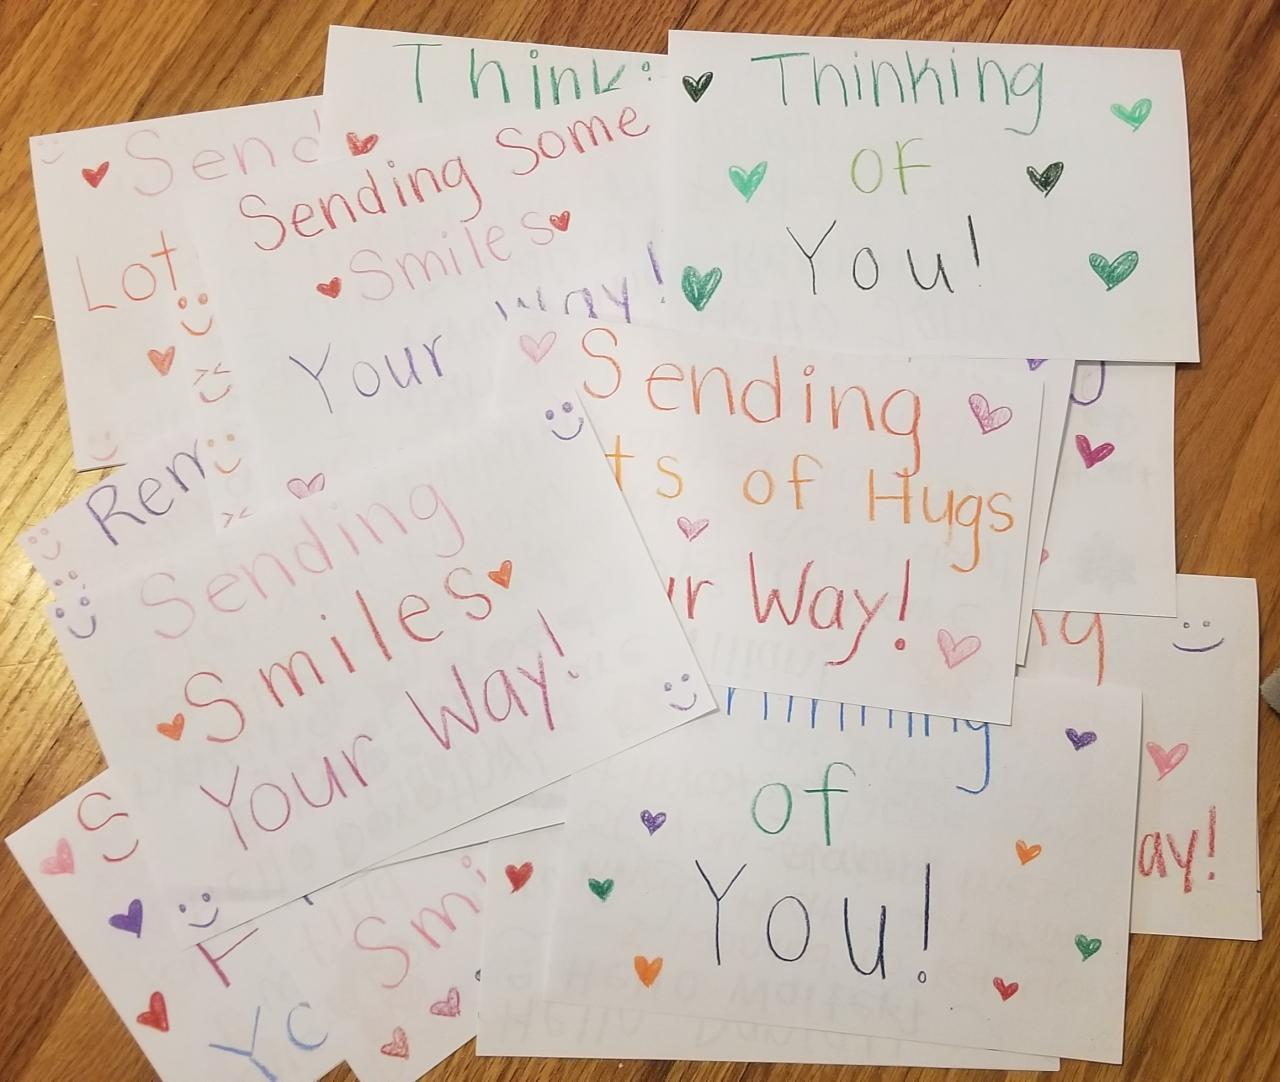 Think
Thinking
of
You!
Send
Lot
Sending Some
Smiles
Your Way!
Sending
ts of Hugs
ur Way!
Rem
Sending
Smiles
Your Way!
ng
ay!
Thinking
of
You!
S
F
Yo
Smi